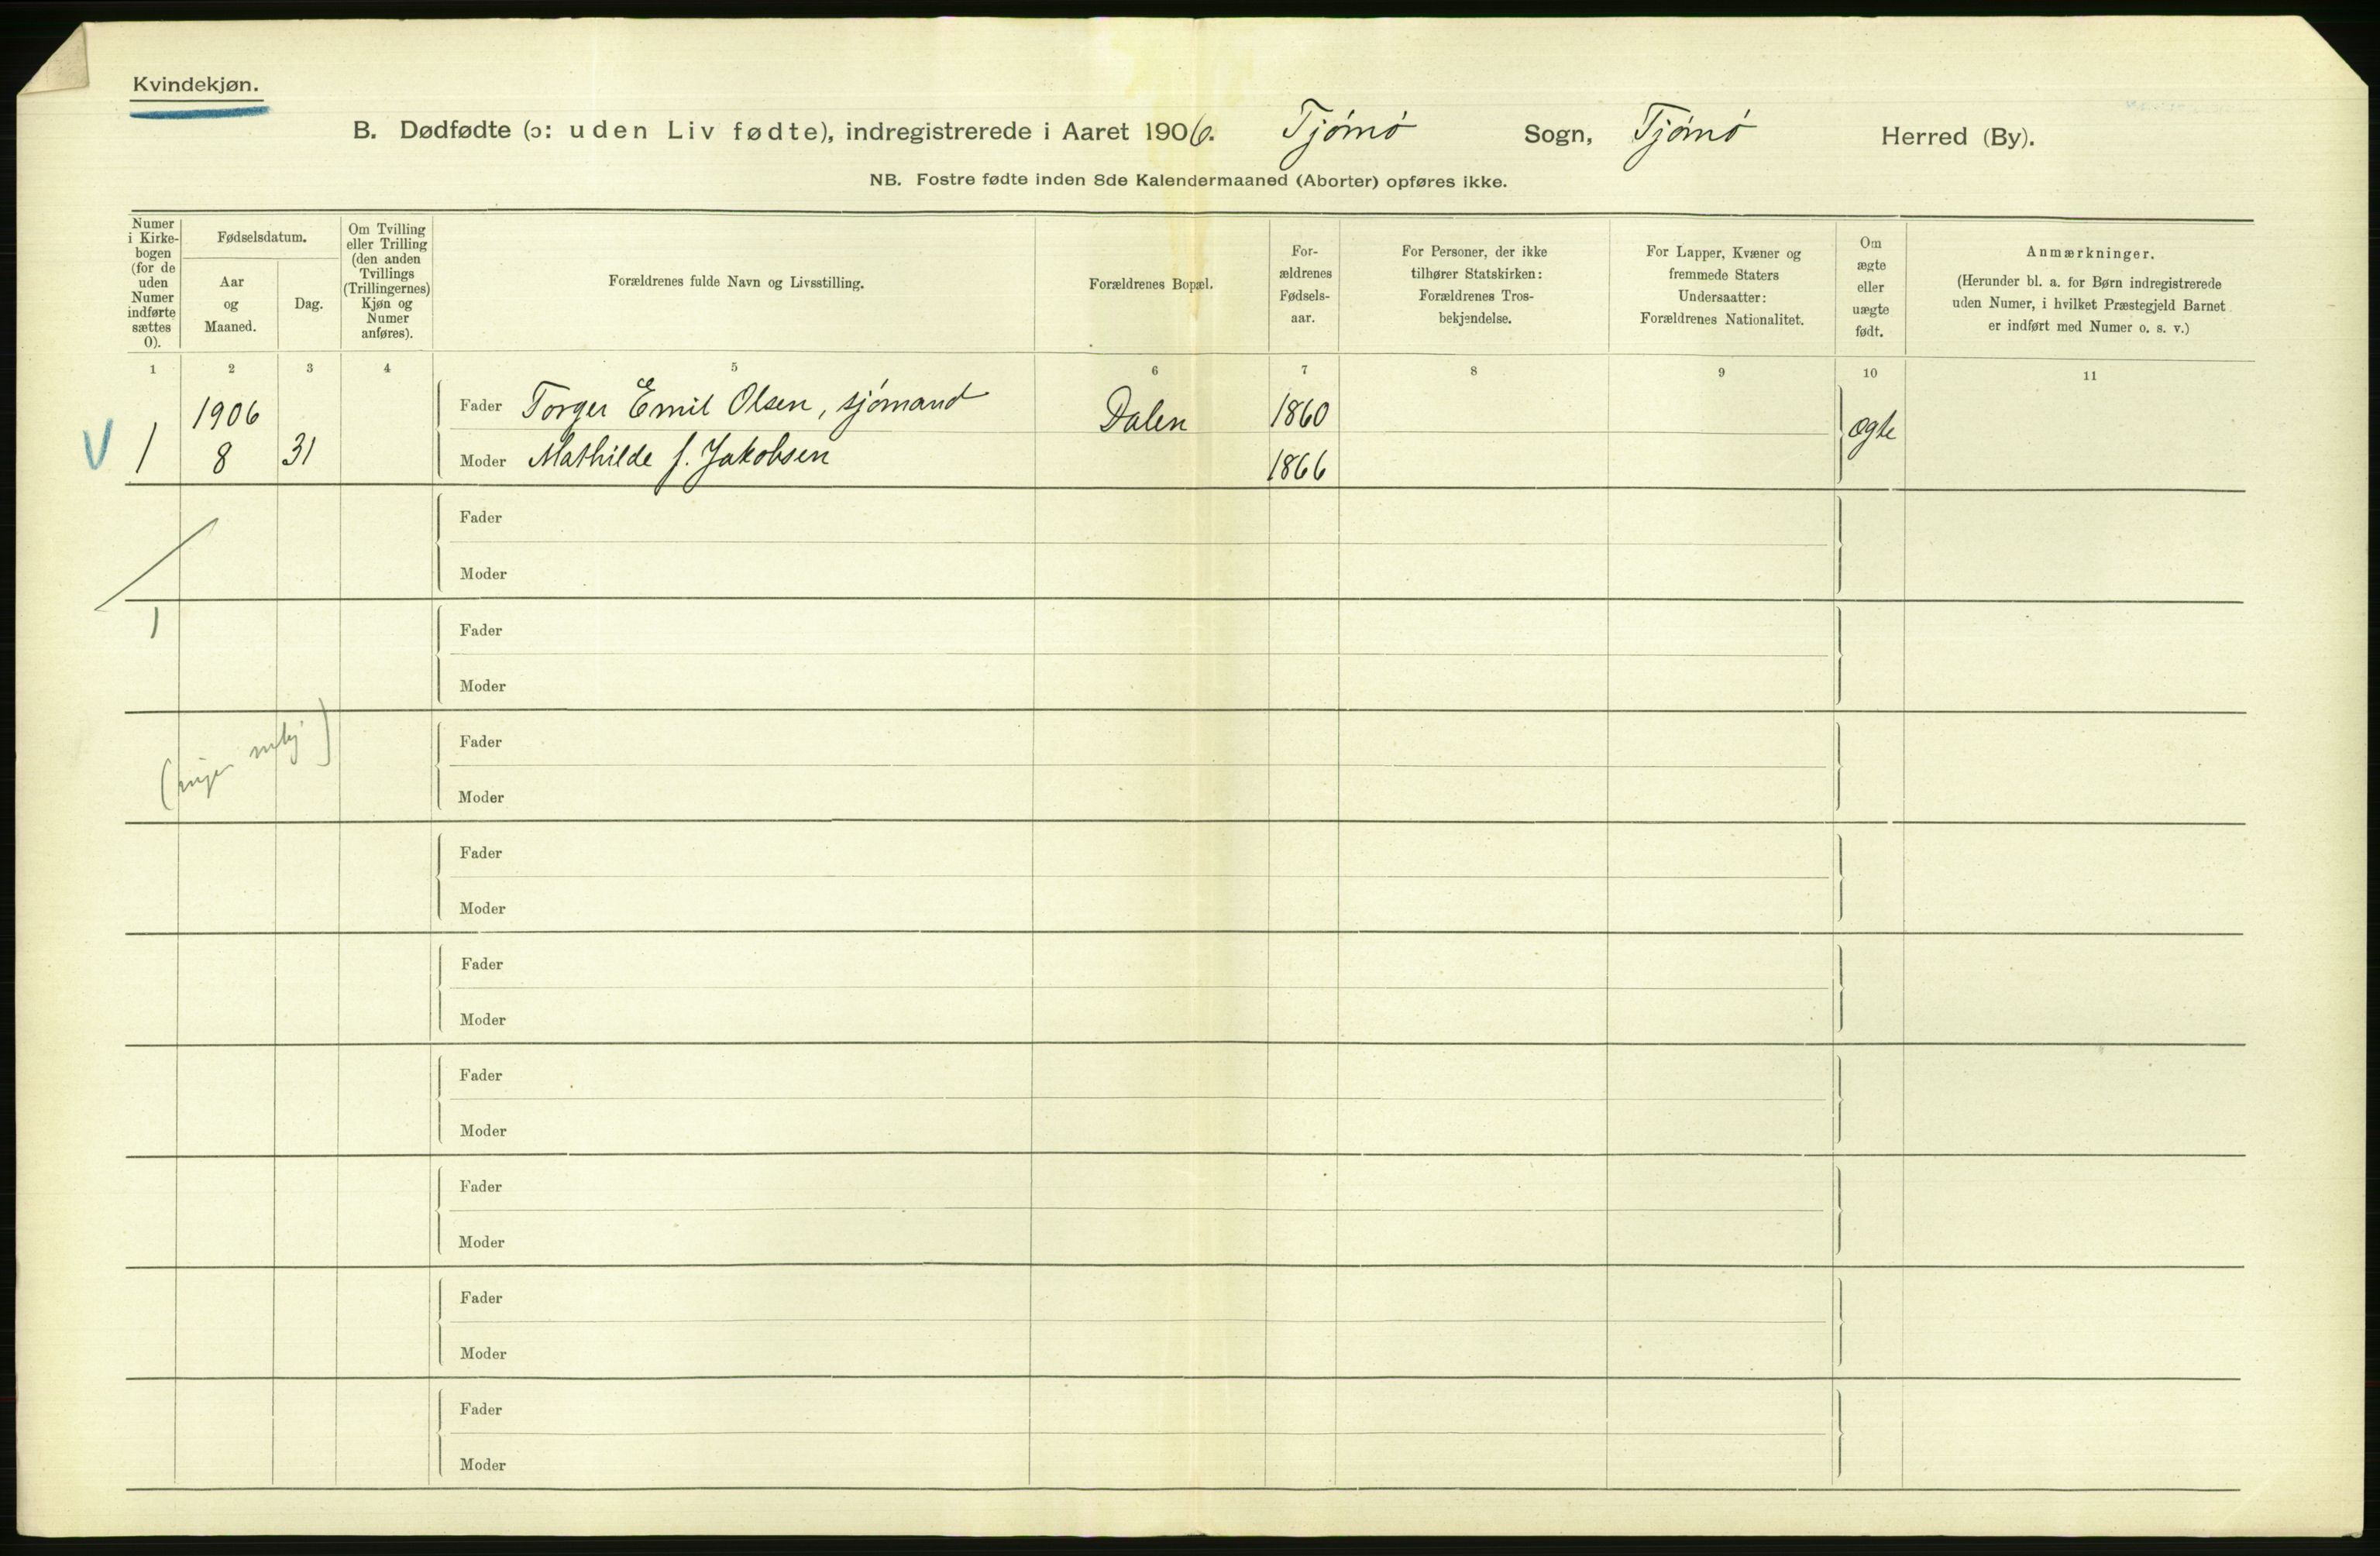 Kvindekjøn.
B. Dødfødte (ɔ: uden Liv fødte), indregistrerede i Aaret 1906. Tjømø Sogn, Tjømø Herred (By).
NB. Fostre fødte inden 8de Kalendermaaned (Aborter) opføres ikke.
Numer
i Kirke-
bogen
(for de
uden
Numer
indførte
sættes
0).
Fødselsdatum.
Aar
og
Maaned.
Dag.
Om Tvilling
eller Trilling
(den anden
Tvillings
(Trillingernes)
Kjøn og
Numer
anføres).
Forældrenes fulde Navn og Livsstilling.
Forældrenes Bopæl.
For-
ældrenes
Fødsels-
aar.
For Personer, der ikke
tilhører Statskirken:
Forældrenes Tros-
bekjendelse.
For Lapper, Kvæner og
fremmede Staters
Undersaatter:
Forældrenes Nationalitet.
Om
ægte
eller
uægte
født.
Anmærkninger.
(Herunder bl. a. for Børn indregistrerede
uden Numer, i hvilket Præstegjeld Barnet
er indført med Numer o. s. v.)
1 2 3 4 5 6 7 8 9 10 11
1906 Fader Torger Emil Olsen, sjømand Dalen 1860 ægte
V 1 8 31 Moder Mathilde f. Jakobsen 1866
Fader
Moder
1
Fader
Moder
Fader
Moder
Fader
Moder
Fader
Moder
Fader
Moder
Fader
Moder
Fader
Moder
Fader
Moder